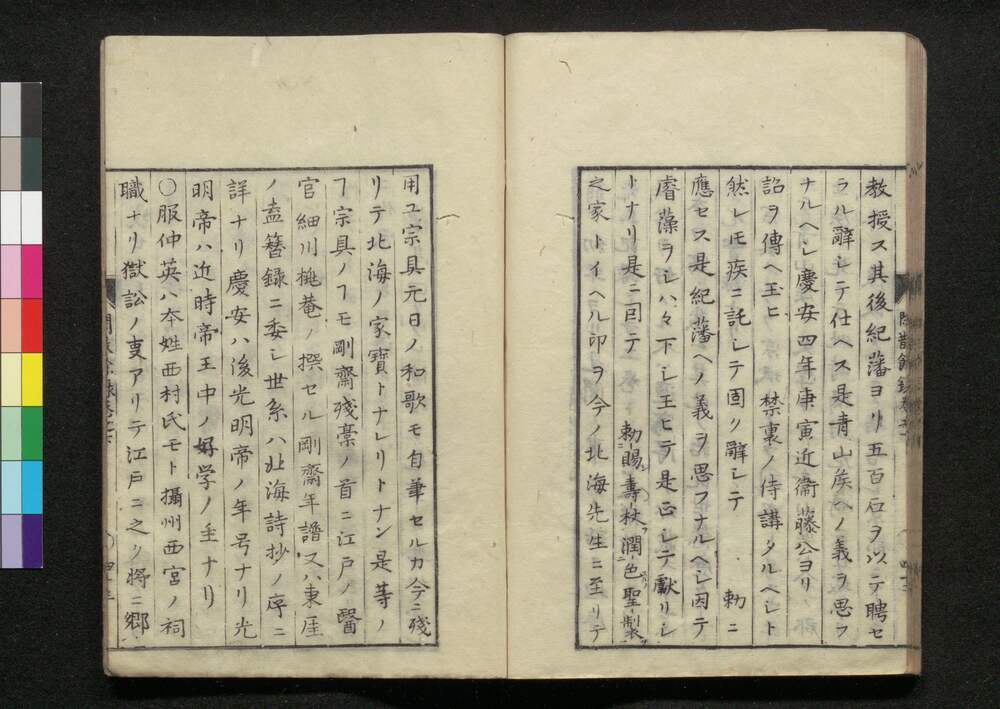 教授ス其後紀藩ヨリ五百石ヲ以テ聘セ
ラル辭シテ仕ヘス是青山侯ヘノ義ヲ思フ
ナルヘシ慶安四年庚寅近衞藤公ヨリ
詔ヲ傳ヘ玉ヒ禁裏ノ侍講タルヘシト
然レ𪜈疾ニ託シテ固ク辭シテ 勅ニ
應セス是紀藩ヘノ義ヲ思フナルヘシ因テ
睿藻ヲシハ々下シ玉ヒテ是正シテ獻リシ
トナリ是ニ因テ 勅賜壽杖潤色聖製
之家トイヘル印ヲ今ノ北海先生ニ至リテ
用ユ宗具元日ノ和歌モ自筆セルカ今ニ殘
リテ北海ノ家寶トナレリトナン是等ノ
ヿ宗具ノヿモ剛齋殘稾ノ首ニ江戸ノ醫
官細川桃菴ノ撰セル剛齋年譜又ハ東厓
ノ盍簪録ニ委シ世系ハ北海詩抄ノ序ニ
詳ナリ慶安ハ後光明帝ノ年号ナリ光
明帝ハ近時帝王中ノ好学ノ主ナリ
〇服仲英ハ本姓西村氏モト攝州西宮ノ祠
職ナリ獄訟ノ叓アリテ江戸ニ之ク將ニ郷